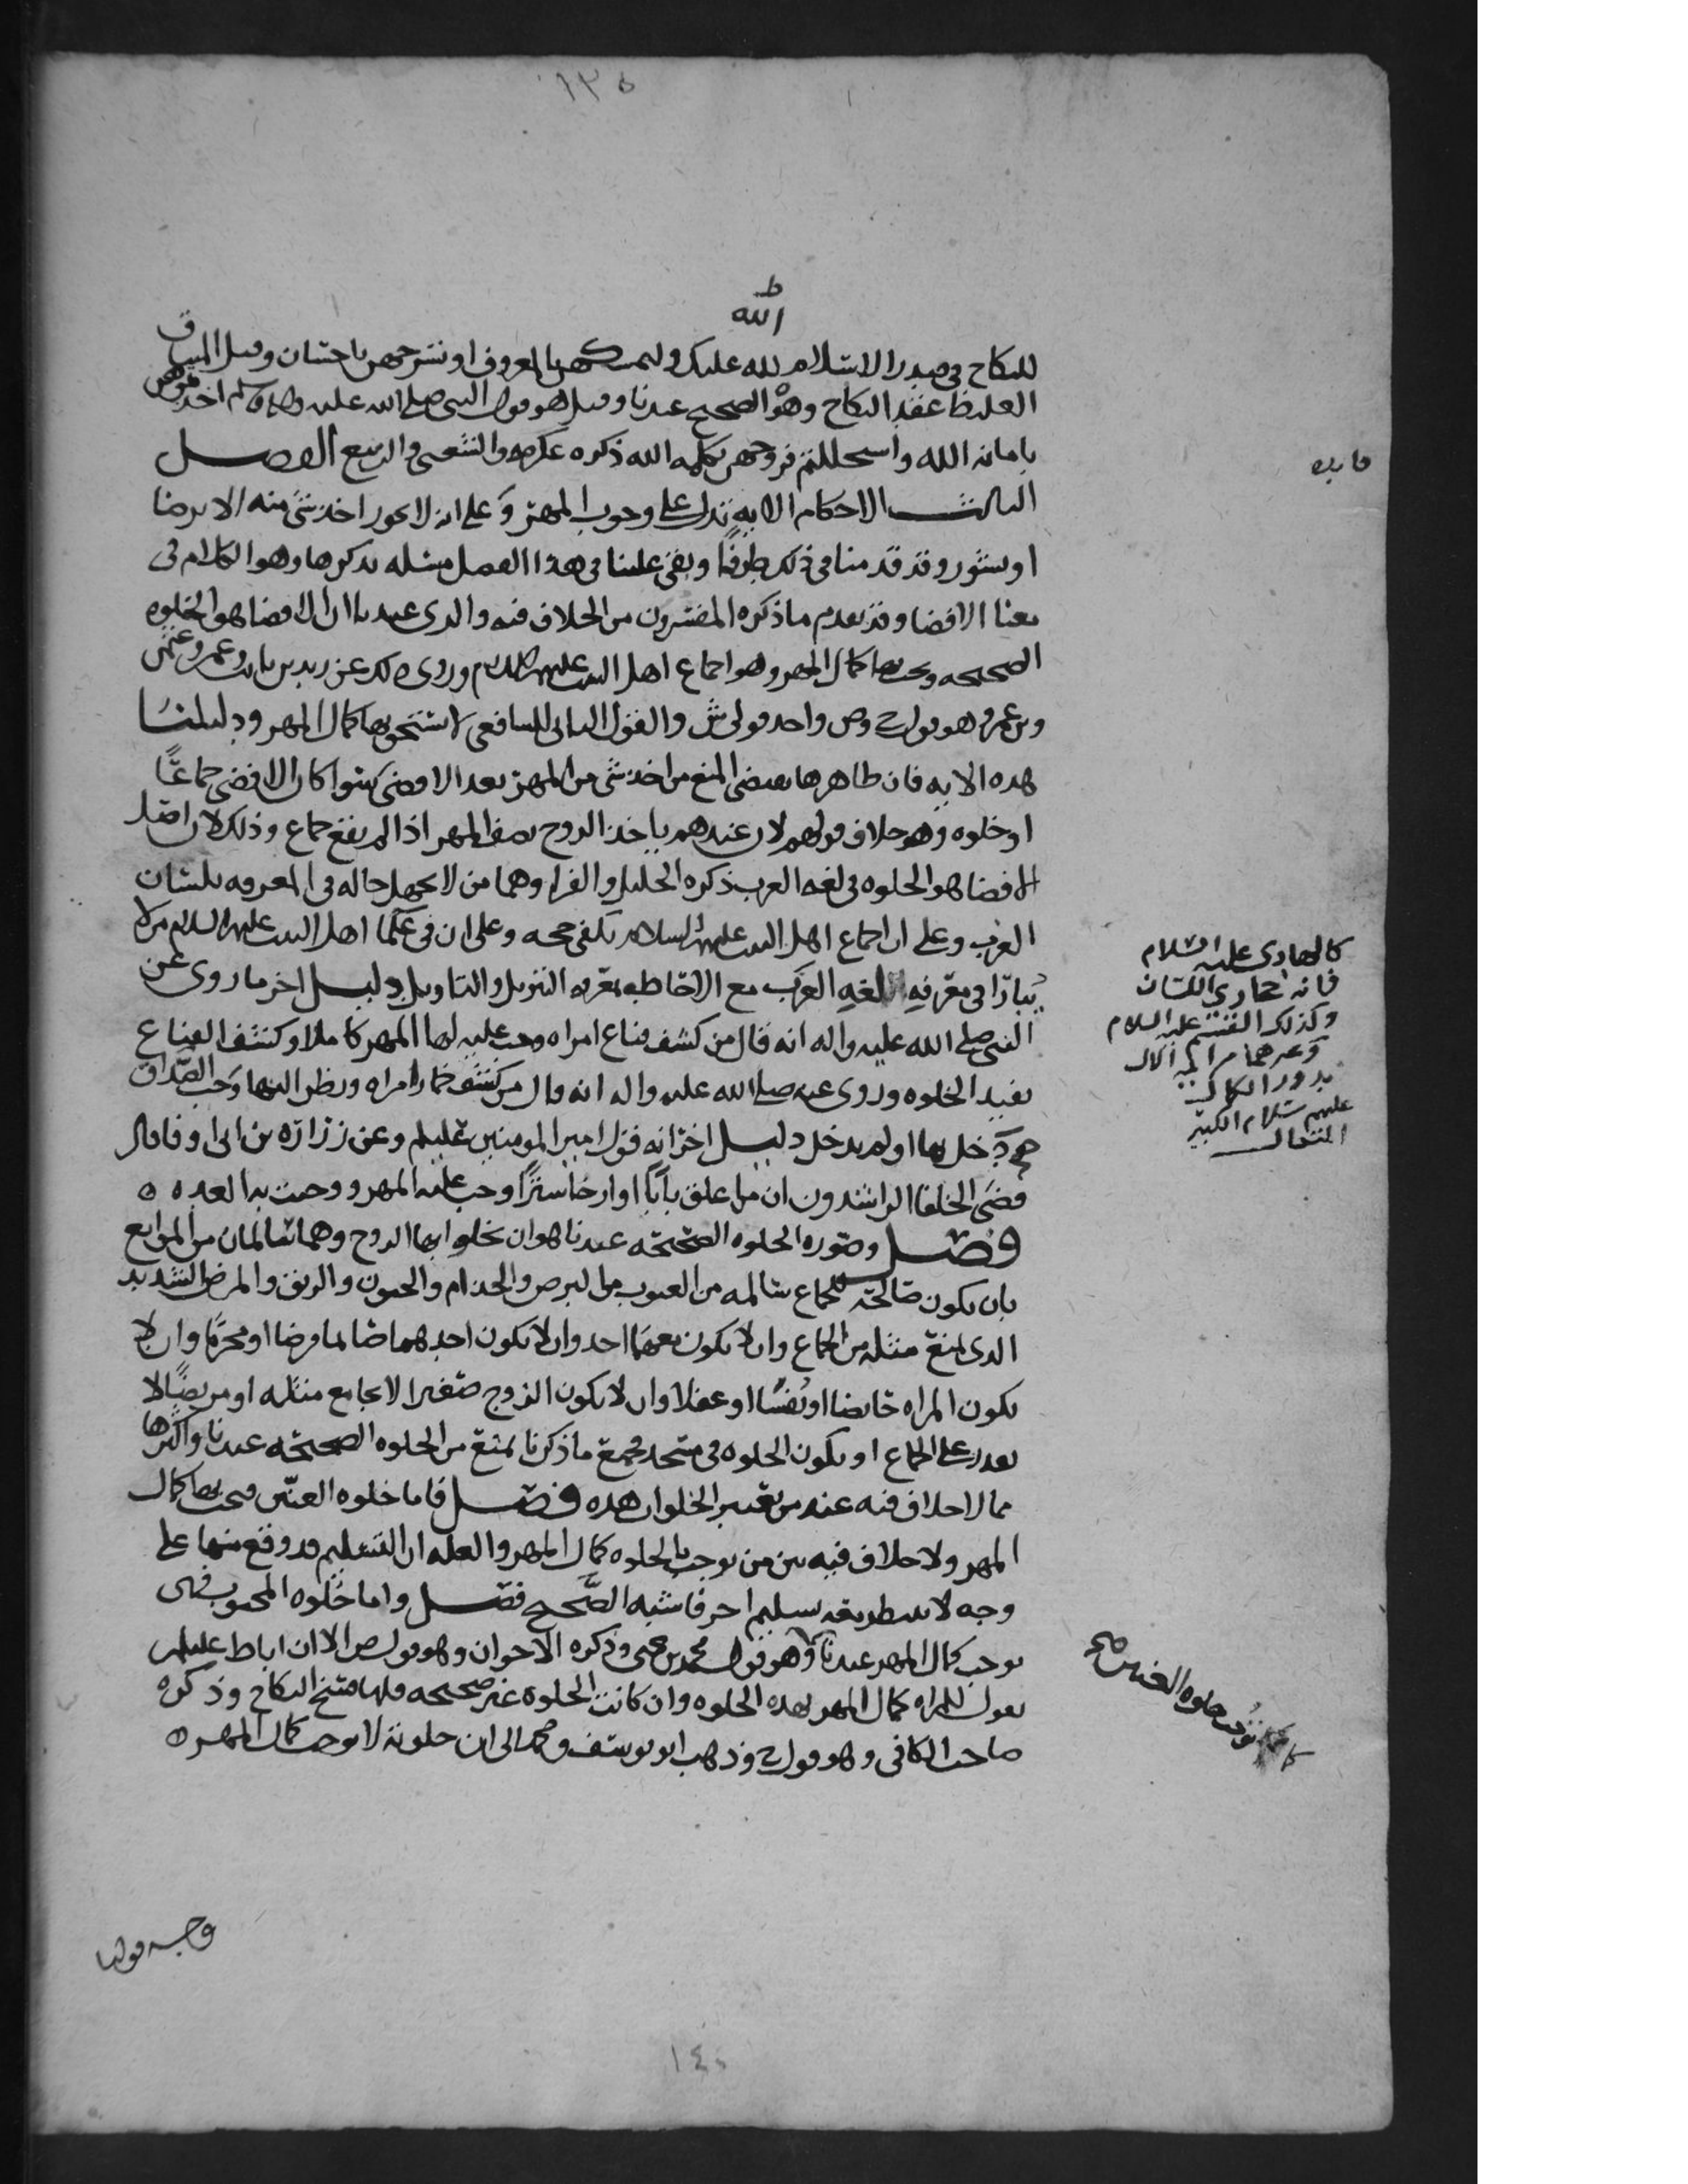 ١٣٥
الله
للنكاح في صدر الاسلام لله عليك ولتمسكهن بالمعروف او تسرحهن باحسان وقيل الميثاق
الغليظ عقد النكاح وهو الصحيح عندنا وقيل هو قول النبي صلى الله عليه واله وسلم اخذتموهن
بامانه الله واستحللتم فروجهن بكلمه الله ذكره عكرمه والشعبي والربيع الفصل
الثالث الاحكام الايه تدل على وجوب المهر وعلى انه لا يجوز اخذ شي منه الا برضا
او نشوز وقد قدمنا في ذلك طرفا وبقي علينا في هذا الفصل مسله نذكرها وهو الكلام في
معنا الافضا وقد تقدم ما ذكره المفسرون من الخلاف فيه والذي عندنا ان الافضا هو الخلوه
الصحيحه ويجب بها كمال المهر وهو اجماع اهل البيت عليهم السلام وروي ذلك عن زيد بن ثابت وعمر وعلي
وبن عمر وهو قول ح وص واحد قولي ش والقول الثاني للشافعي لا تستحق بها كمال المهر ودليلنا
هذه الايه فان ظاهرها يقتضي المنع من اخذ شي من المهر بعد الافضى سوا كان الافضى جماعا
او خلوه وهو خلاف قولهم لان عندهم ياخذ الزوج نصف المهر اذا لم يقع جماع وذلك لان اصل
الافضا هو الخلوه في لغه العرب ذكره الخليل والفرا وهما من لا يجهل حاله في المعرفه بلسان
العرب وعلى ان اجماع اهل البيت عليهم السلام يكفي حجه وعلى ان في علما اهل البيت عليهم السلام من لا
يبارا في معرفه لغه العرب مع الاحاطه بمعرفه التنزيل والتاويل دليل اخر ما روي عن
النبي صلى الله عليه واله انه قال من كشف قناع امراه وجب عليه لها المهر كاملا وكشف القناع
يفيد الخلوه وروي عنه صلى الله عليه واله انه قال من كشف خمار امراه ونظر اليها وجب الصداق
دخل بها او لم يدخل دليل اخر انه قول امير المومنين عليلم وعن زراره بن ابي اوفا قال
قضى الخلفا الراشدون ان من اغلق بابا او ارخا سترا وجب عليه المهر ووجبت به العده ه
فصل وصوره الخلوه الصحيحه عندنا هو ان يخلو بها الزوج وهما سالمان من الموانع
بان يكون صالحه للجماع سالمه من العيوب مثل البرص والجذام والجنون والرتق والمرض الشديد
الذي يمنع مثله من الجماع وان لا يكون معهما احد وان لا يكون احدهما صايما فرضا او محرما وان لا
يكون المراه حايضا او نفسا او عفلا وان لا يكون الزوج صغيرا لا يجامع مثله او مريضا لا
يقدر على الجماع او يكون الخلوه في مسجد فجميع ما ذكرنا يمنع من الخلوه الصحيحه عندنا واكثرها
مما لا خلاف فيه عند من يعتبر الخلوات هذه فصل فاما خلوه العنين فيجب بها كمال
المهر ولا خلاف فيه بين من يوجب بالخلوه كمال المهر والعله ان التسليم قد وقع منها على
وجه لا ينتظر معه تسليم اخر فاشبه الصحيح فصل واما خلوه المجبوب فهي
توجب كمال المهر عندنا وهو قول محمد بن يحيى وذكره الاخوان وهو قول ص الا ان اباط عليلم
يقول للمراه كمال المهر بهذه الخلوه وان كانت الخلوه غير صحيحه فلها فسخ النكاح وذكره
صاحب الكافي وهو قول ح وذهب ابو يوسف ومحمد الى ان خلوته لا توجب كمال المهر ه
كالهادي عليه السلام
فانه حجازي اللسان
وكذلك القسم عليه السلام
وغيرهما من ايمه الال
بدور الكمال
عليهم سلام الكبير
المتعال
كما توجب خلوه العنين صح
وجه قولنا
١٤٠